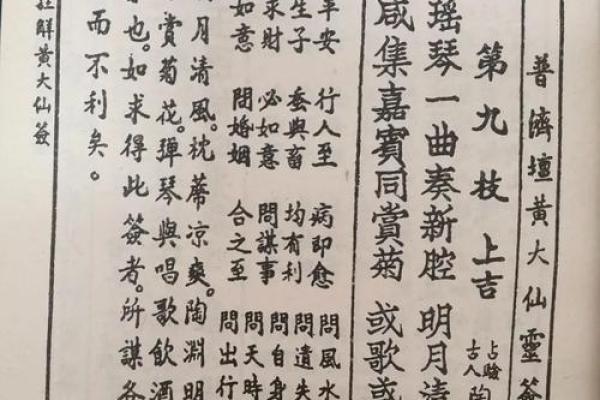 普濟壇黃大仙靈簽
第九枝 上吉 占驗古人 陶
瑤琴一曲奏新腔 明月清
咸集嘉賓同賞菊 或歌或
平安 行人至 病即愈 問風水
生子 蚕與畜 均有利 問遺失
求財 必如意 問謀事 問自身
如意 問婚姻 合之至 問天時
問出行
月清風。枕蓆凉爽。陶淵明
賞菊花。彈琴與唱歌飲酒
也。如求得此簽者。所謀各
而不利矣。
註解黃大仙簽